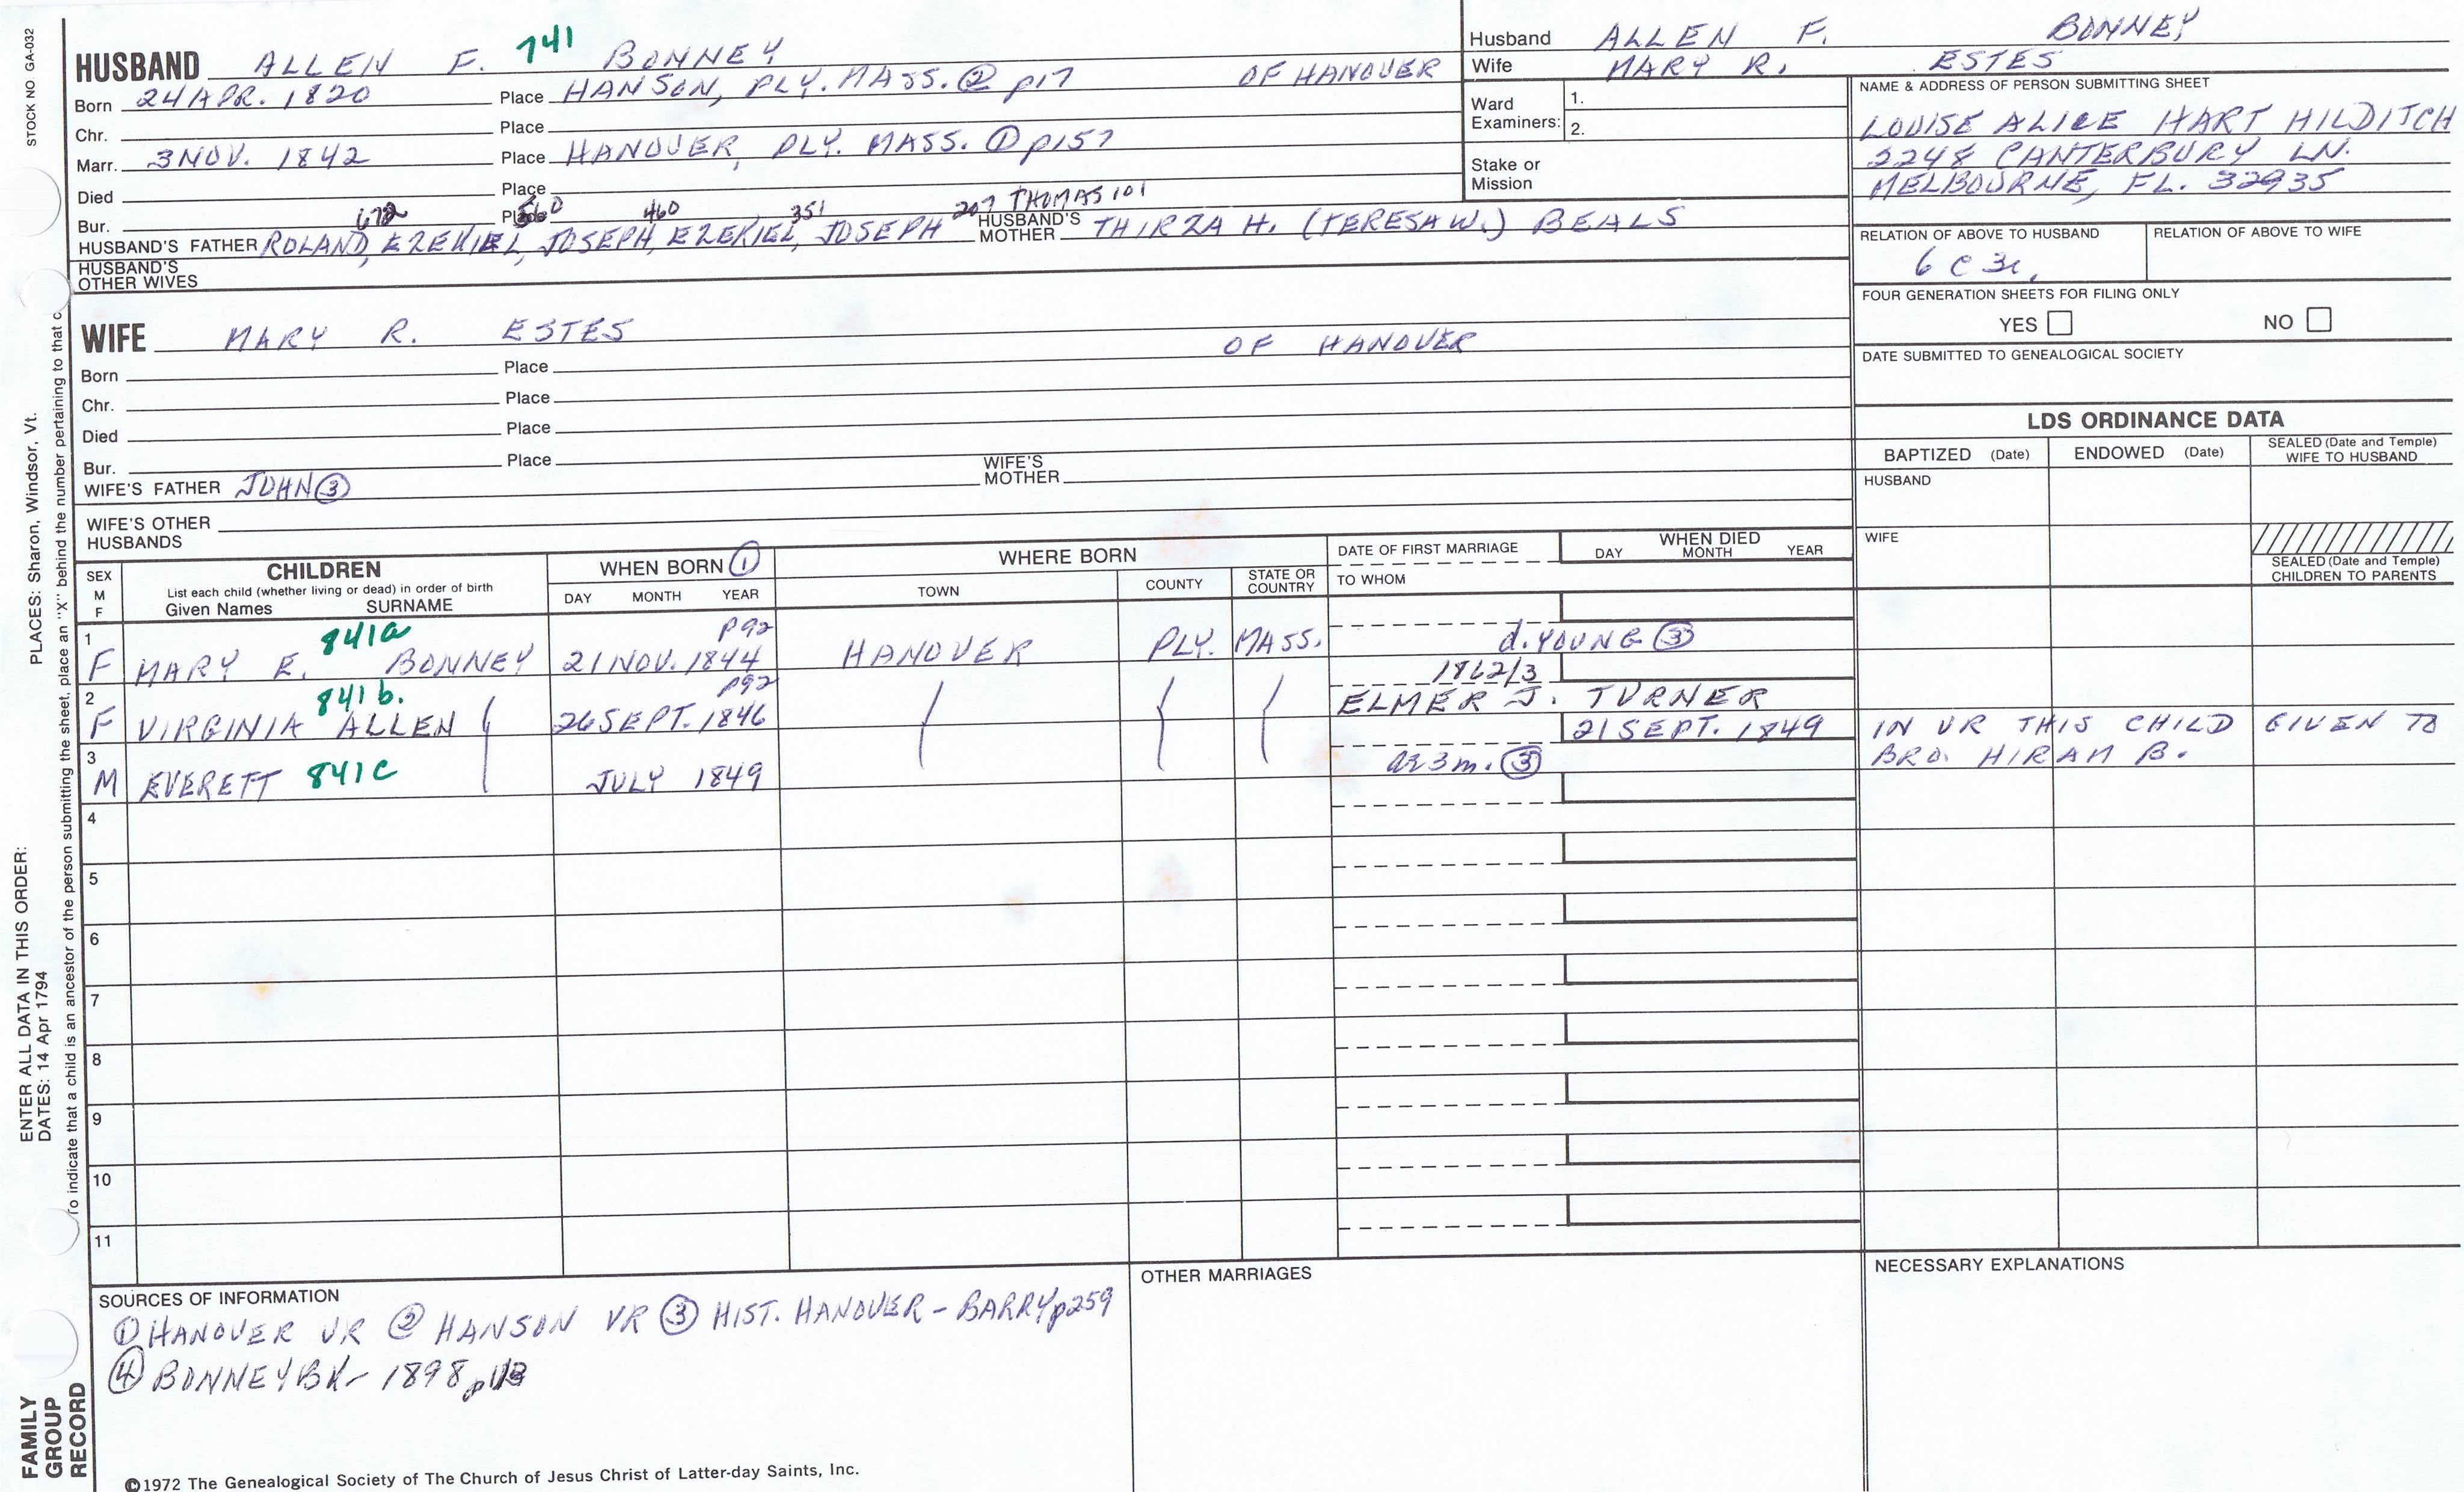 STOCK NO GA-032
HUSBAND ALLEN F. 741 BONNEY
Born 24 APR. 1820 Place HANSON, PLY. MASS. ② p17 OF HANOVER
Chr. Place
Marr. 3 NOV. 1842 Place HANOVER, PLY. MASS. ① p157
Died Place
Bur. Place
672 560 460 351 207 THOMAS 101
HUSBAND'S FATHER ROLAND, EZEKIEL, JOSEPH, EZEKIEL, JOSEPH HUSBAND'S MOTHER THIRZA H. (TERESA W.) BEALS
HUSBAND'S OTHER WIVES
Husband ALLEN F. BONNEY
Wife MARY R. ESTES
Ward Examiners: 1.
2.
Stake or Mission
NAME & ADDRESS OF PERSON SUBMITTING SHEET
LOUISE ALICE HART HILDITCH
2248 CANTERBURY LN.
MELBOURNE, FL. 32935
RELATION OF ABOVE TO HUSBAND RELATION OF ABOVE TO WIFE
6 C 3r.
FOUR GENERATION SHEETS FOR FILING ONLY
YES NO
DATE SUBMITTED TO GENEALOGICAL SOCIETY
WIFE MARY R. ESTES OF HANOVER
Born Place
Chr. Place
Died Place
Bur. Place
WIFE'S FATHER JOHN ③ WIFE'S MOTHER
WIFE'S OTHER HUSBANDS
LDS ORDINANCE DATA
BAPTIZED (Date) ENDOWED (Date) SEALED (Date and Temple) WIFE TO HUSBAND
HUSBAND
WIFE
SEALED (Date and Temple) CHILDREN TO PARENTS
SEX M F
CHILDREN
List each child (whether living or dead) in order of birth
Given Names SURNAME
WHEN BORN ①
DAY MONTH YEAR
WHERE BORN
TOWN COUNTY STATE OR COUNTRY
DATE OF FIRST MARRIAGE
TO WHOM
WHEN DIED
DAY MONTH YEAR
1 841a p92
F MARY E. BONNEY 21 NOV. 1844 HANOVER PLY. MASS. d. YOUNG ③
2 841b. p92 1862/3
F VIRGINIA ALLEN 26 SEPT. 1846 ELMER J. TURNER
3 21 SEPT. 1849 IN VR THIS CHILD GIVEN TO
M EVERETT 841c JULY 1849 ae 3m. ③ BRO. HIRAM B.
4
5
6
7
8
9
10
11
SOURCES OF INFORMATION
① HANOVER VR ② HANSON VR ③ HIST. HANOVER - BARRY p259
④ BONNEY BK - 1898
OTHER MARRIAGES
NECESSARY EXPLANATIONS
©1972 The Genealogical Society of The Church of Jesus Christ of Latter-day Saints, Inc.
FAMILY
GROUP
RECORD
ENTER ALL DATA IN THIS ORDER:
DATES: 14 Apr 1794
PLACES: Sharon, Windsor, Vt.
To indicate that a child is an ancestor of the person submitting the sheet, place an "X" behind the number pertaining to that c